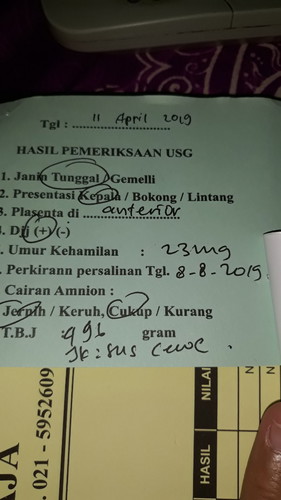 Tgl : 11 April 2019
HASIL PEMERIKSAAN USG
1. Janin Tunggal / Gemelli
2. Presentasi Kepala / Bokong / Lintang
3. Plasenta di anterior
. Djj (+) (-)
. Umur Kehamilan : 23mg
. Perkirann persalinan Tgl. 8-8-2019
Cairan Amnion :
Jernih / Keruh, Cukup / Kurang
T.B.J : 496 gram
JK : sus cewe .
. 021 - 5952609
HASIL
NILAI